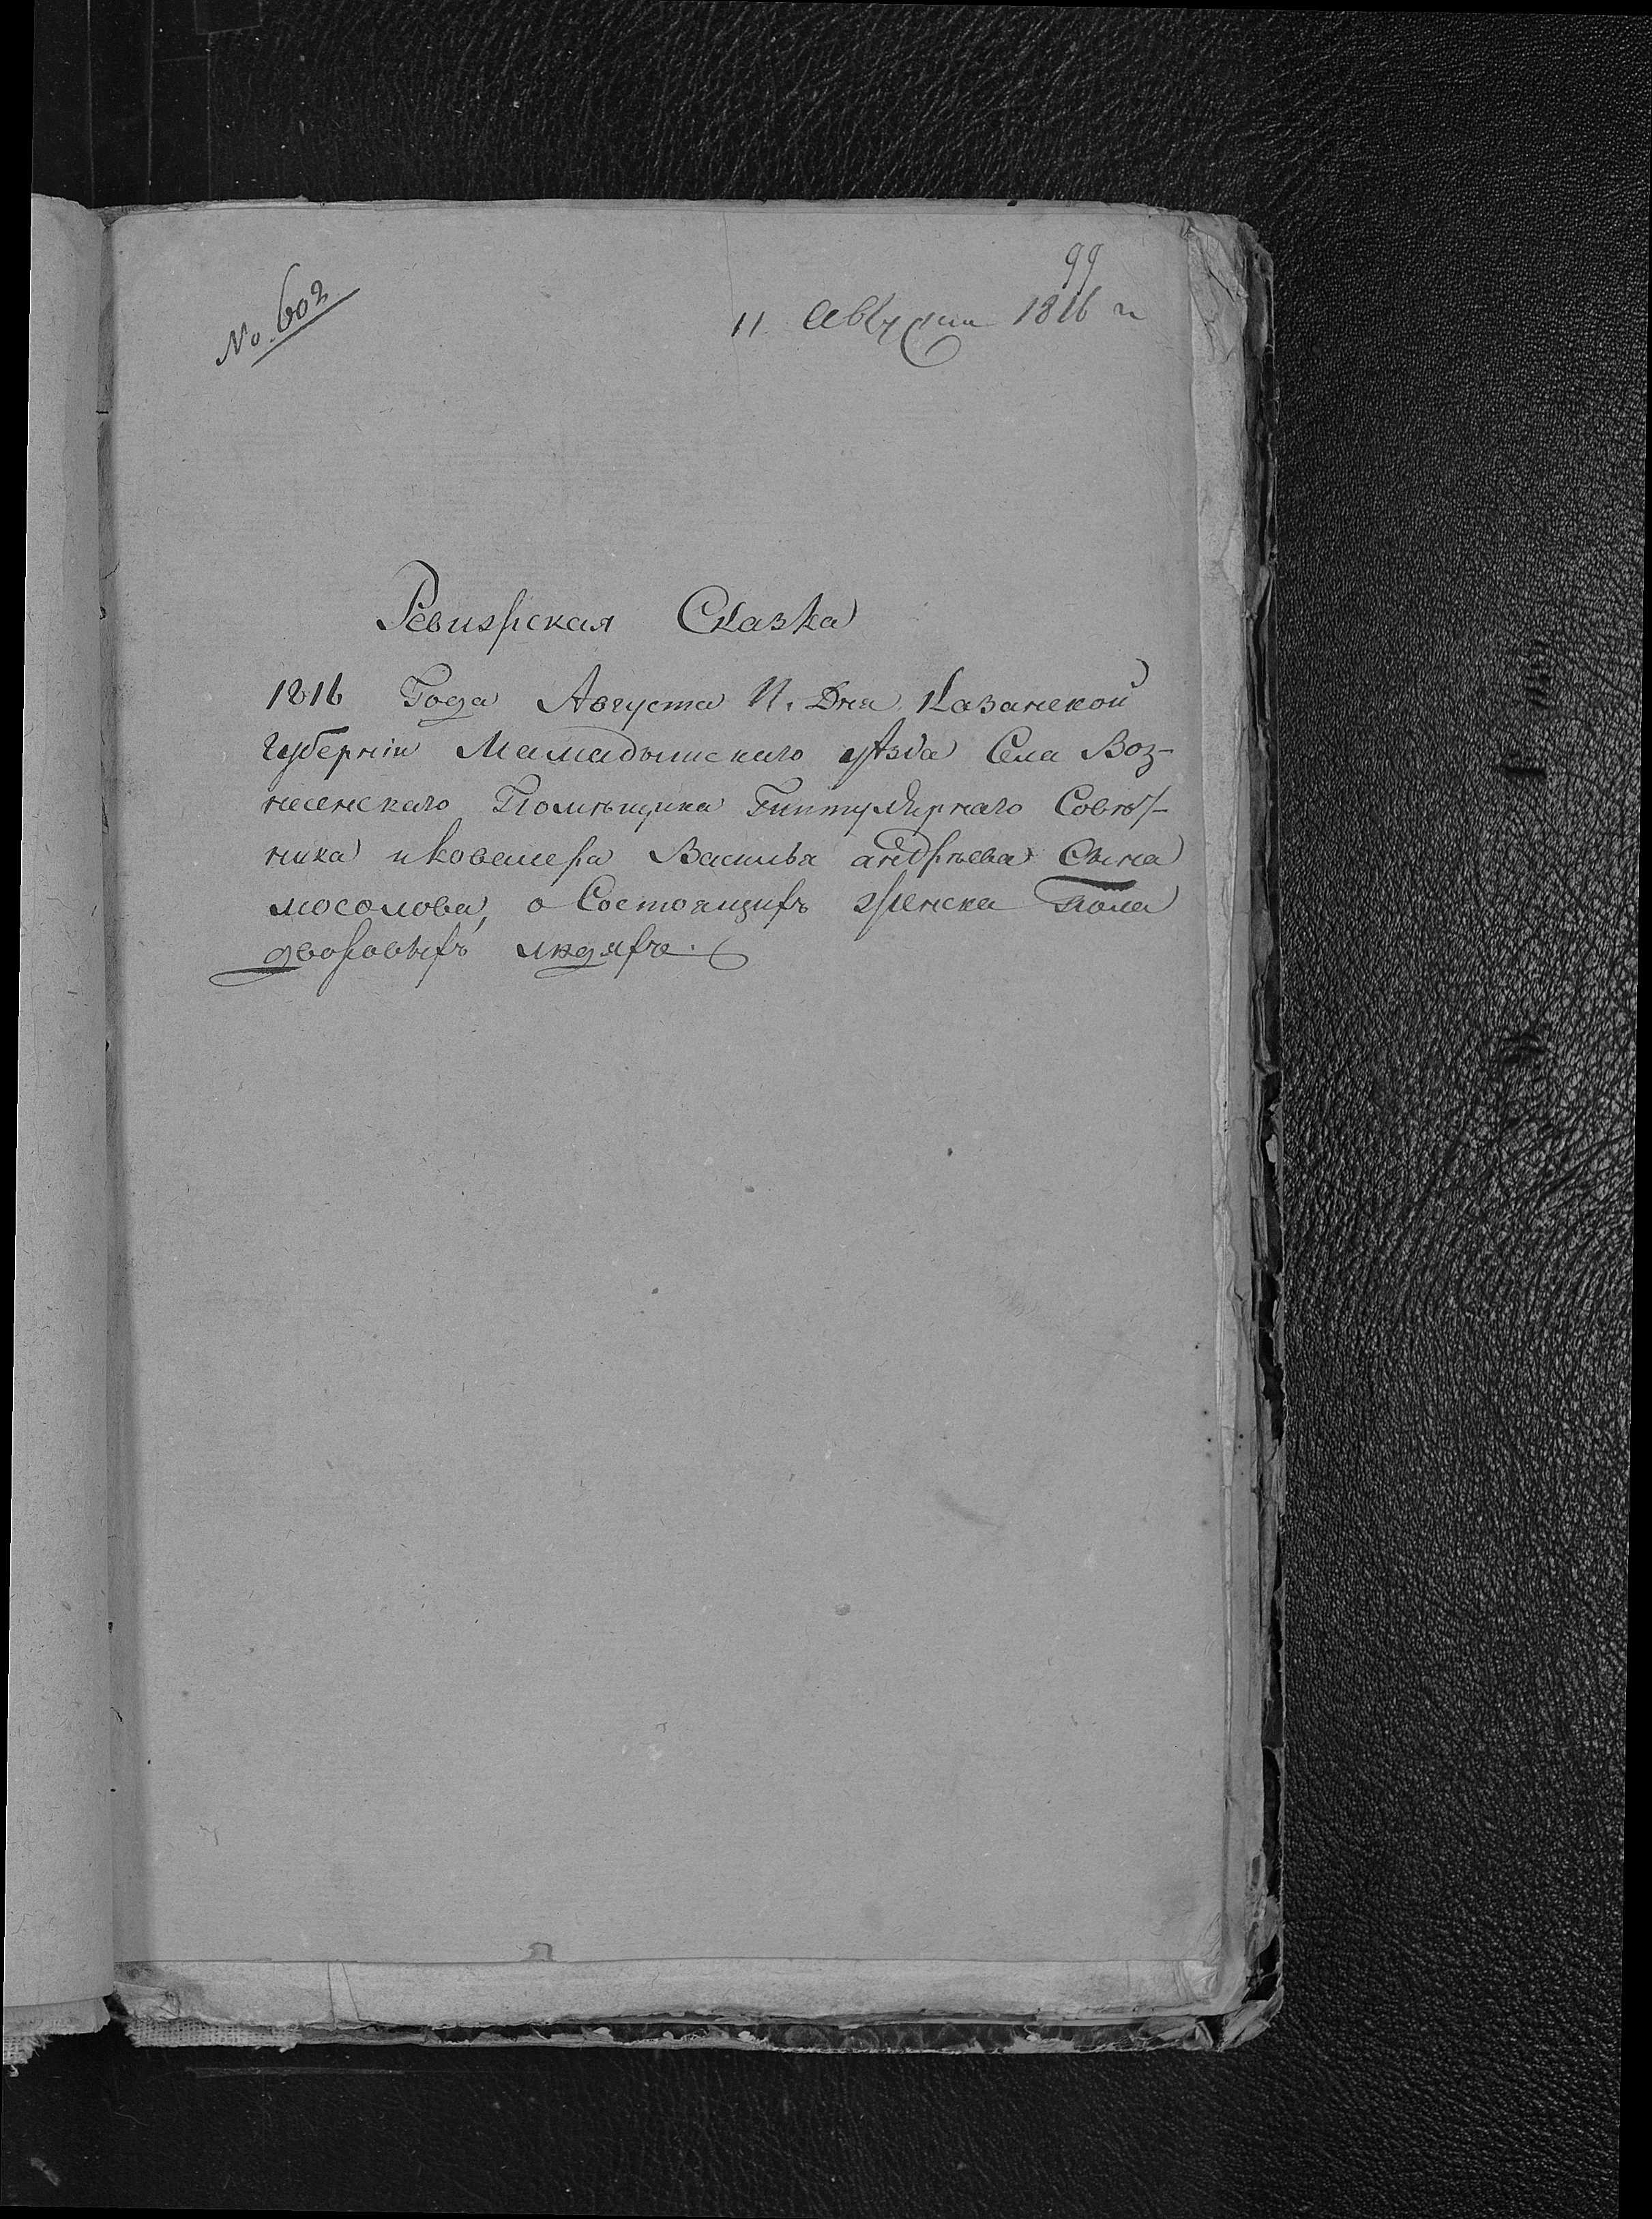 99
No. 602
11 Августа 1816 г
Ревизская Сказка
1816 Года Августа 11. Дня Казанской
губернiи Мамадышскаго уѣзда Села Воз-
несенскаго Помѣщика Титулярнаго Совѣт-
ника и ковалера Василья андрѣева Сына
мосолова, о Состоящихъ женска Пола
дворовыхъ людяхъ.